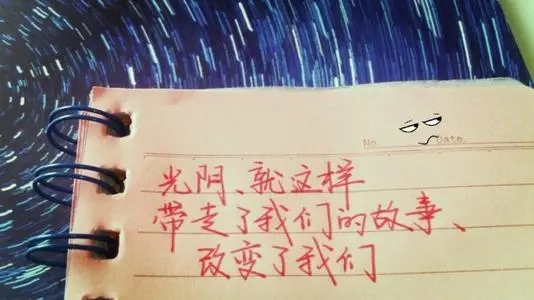 No. Date.
光阴、就这样
带走了我们的故事、
改变了我们